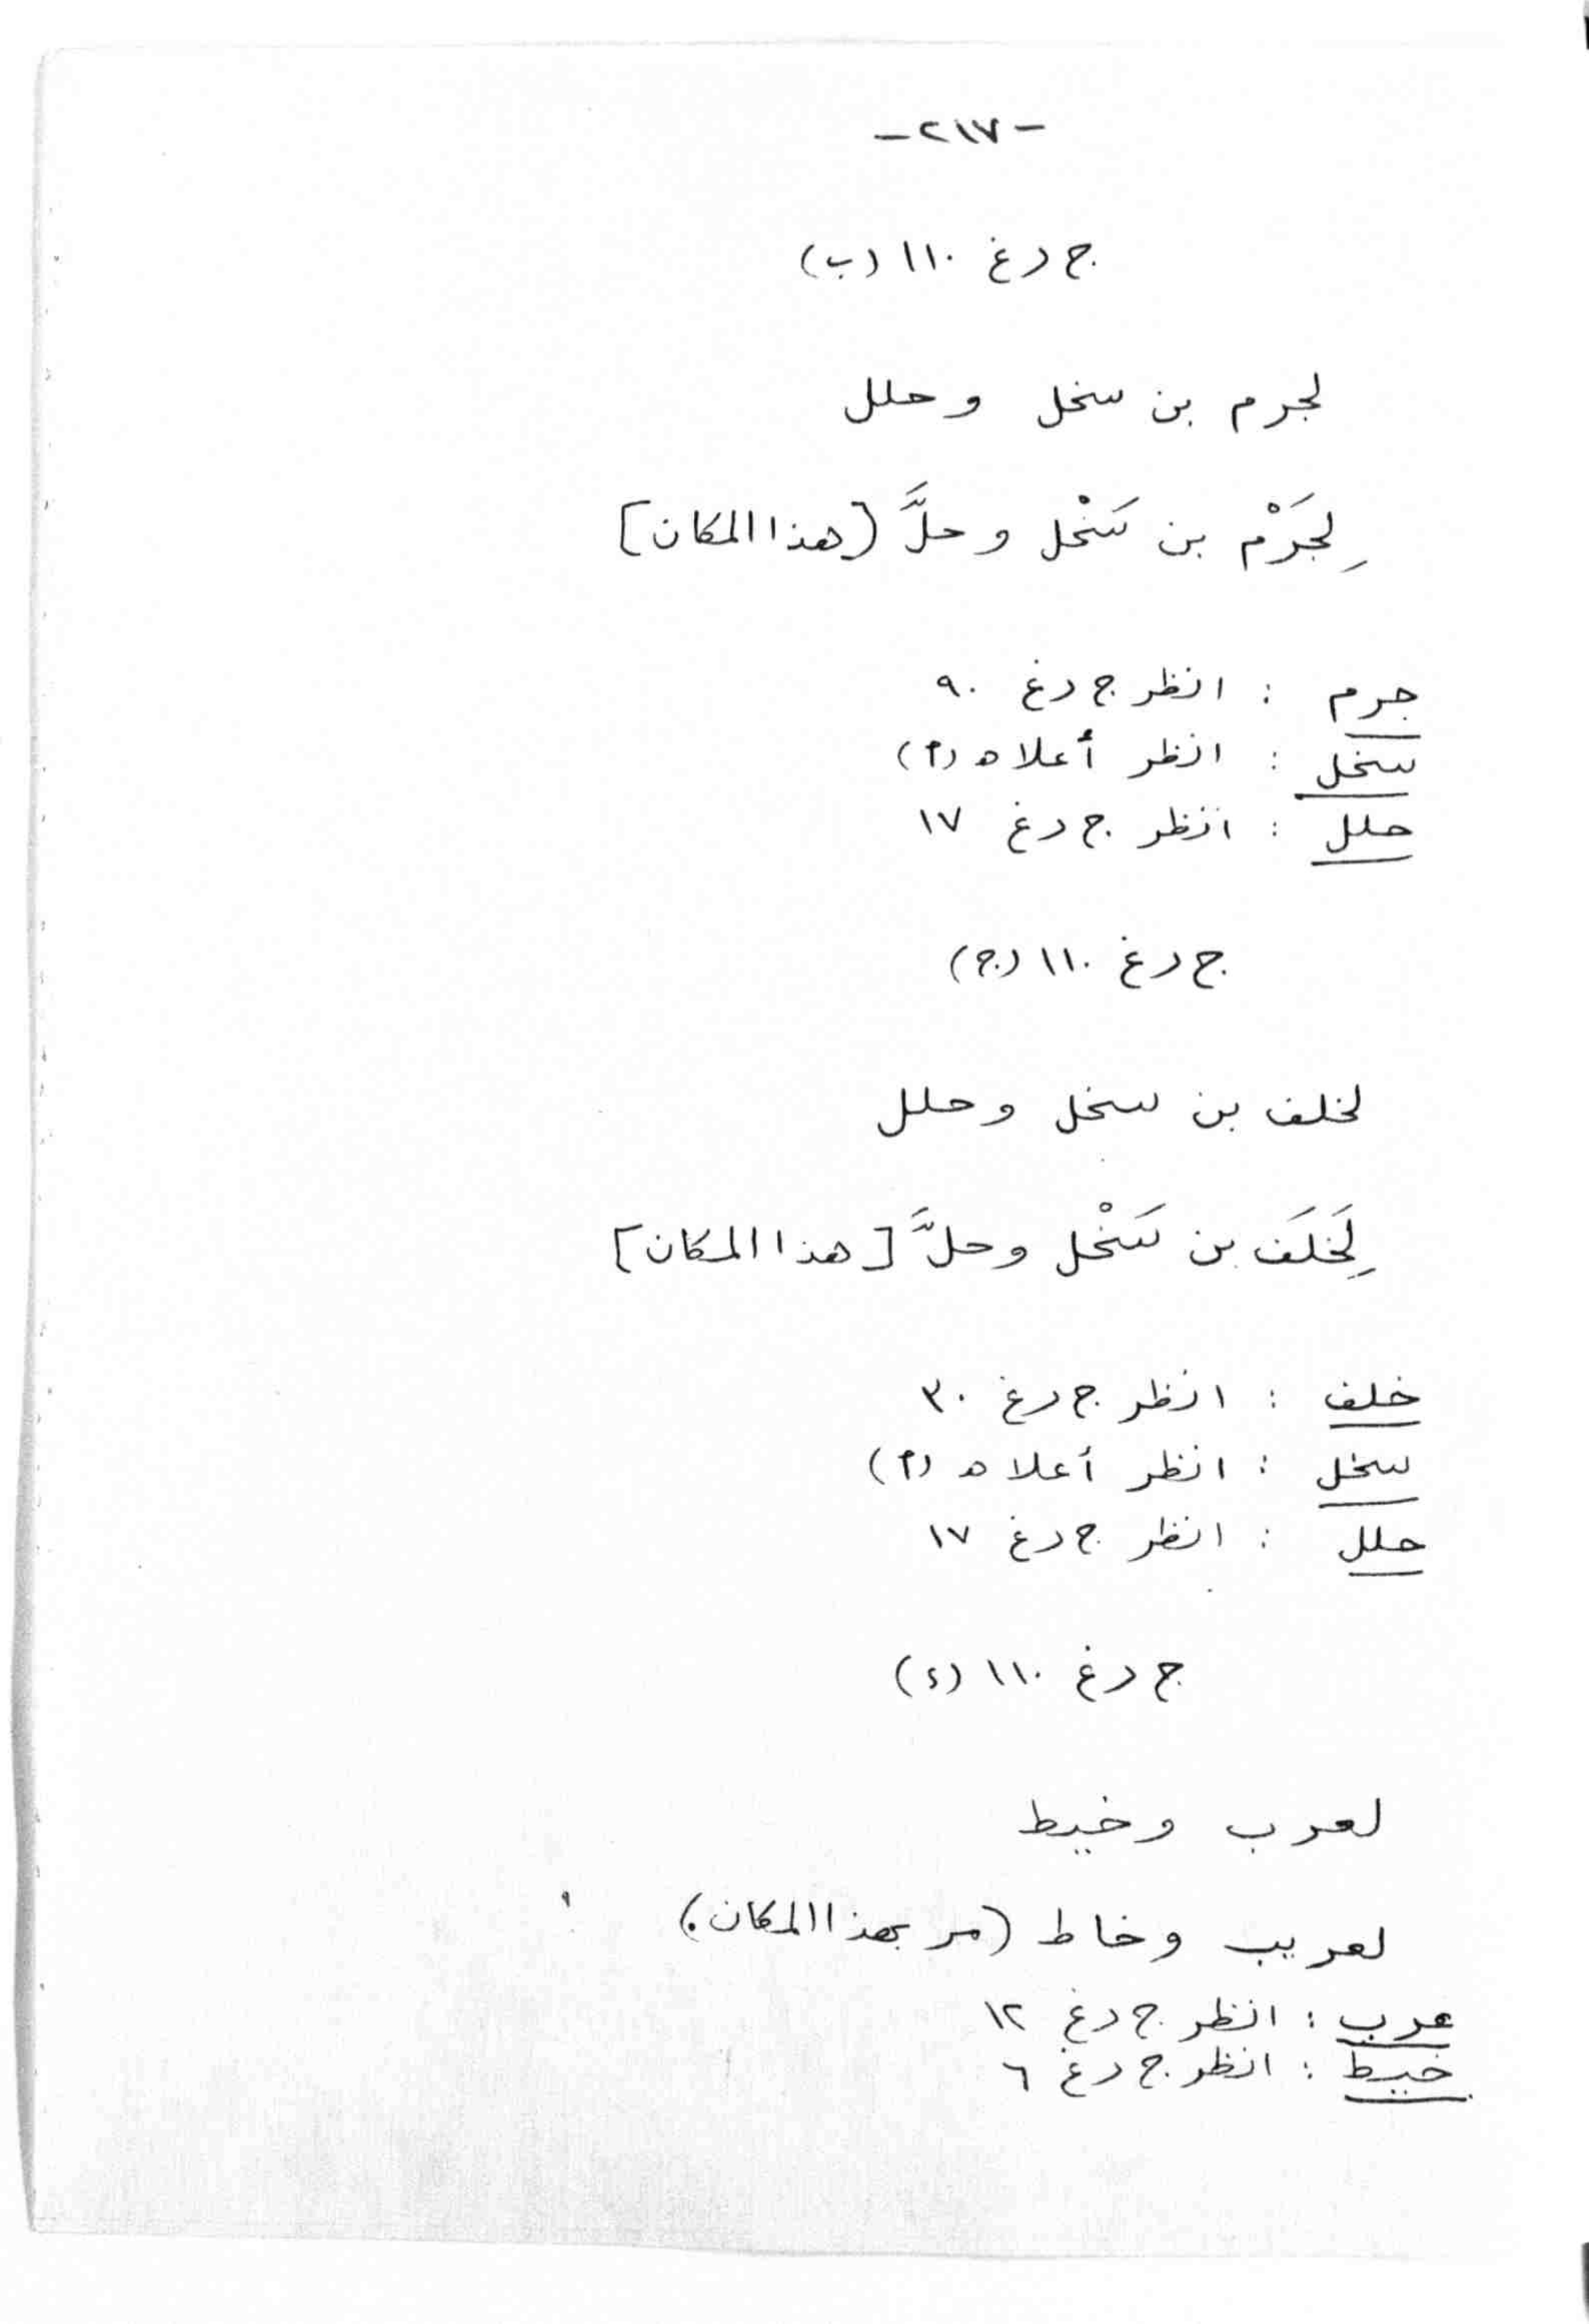 -٢١٧-
ج د غ ١١٠ (ب)
لجرم بن سخل وحلل
لِجَرْم بن سَخْل وحلَّ [هذا المكان]
جرم : انظر ج د غ ٩٠
سخل : انظر أعلاه (أ)
حلل : انظر ج د غ ١٧
ج د غ ١١٠ (ج)
لخلف بن سخل وحلل
لِخَلَف بن سَخْل وحلَّ [هذا المكان]
خلف : انظر ج د غ ٣٠
سخل : انظر أعلاه (أ)
حلل : انظر ج د غ ١٧
ج د غ ١١٠ (د)
لعرب وخيط
لعريب وخاط (مر بهذا المكان.)
عرب : انظر ج د غ ١٢
خيط : انظر ج د غ ٦